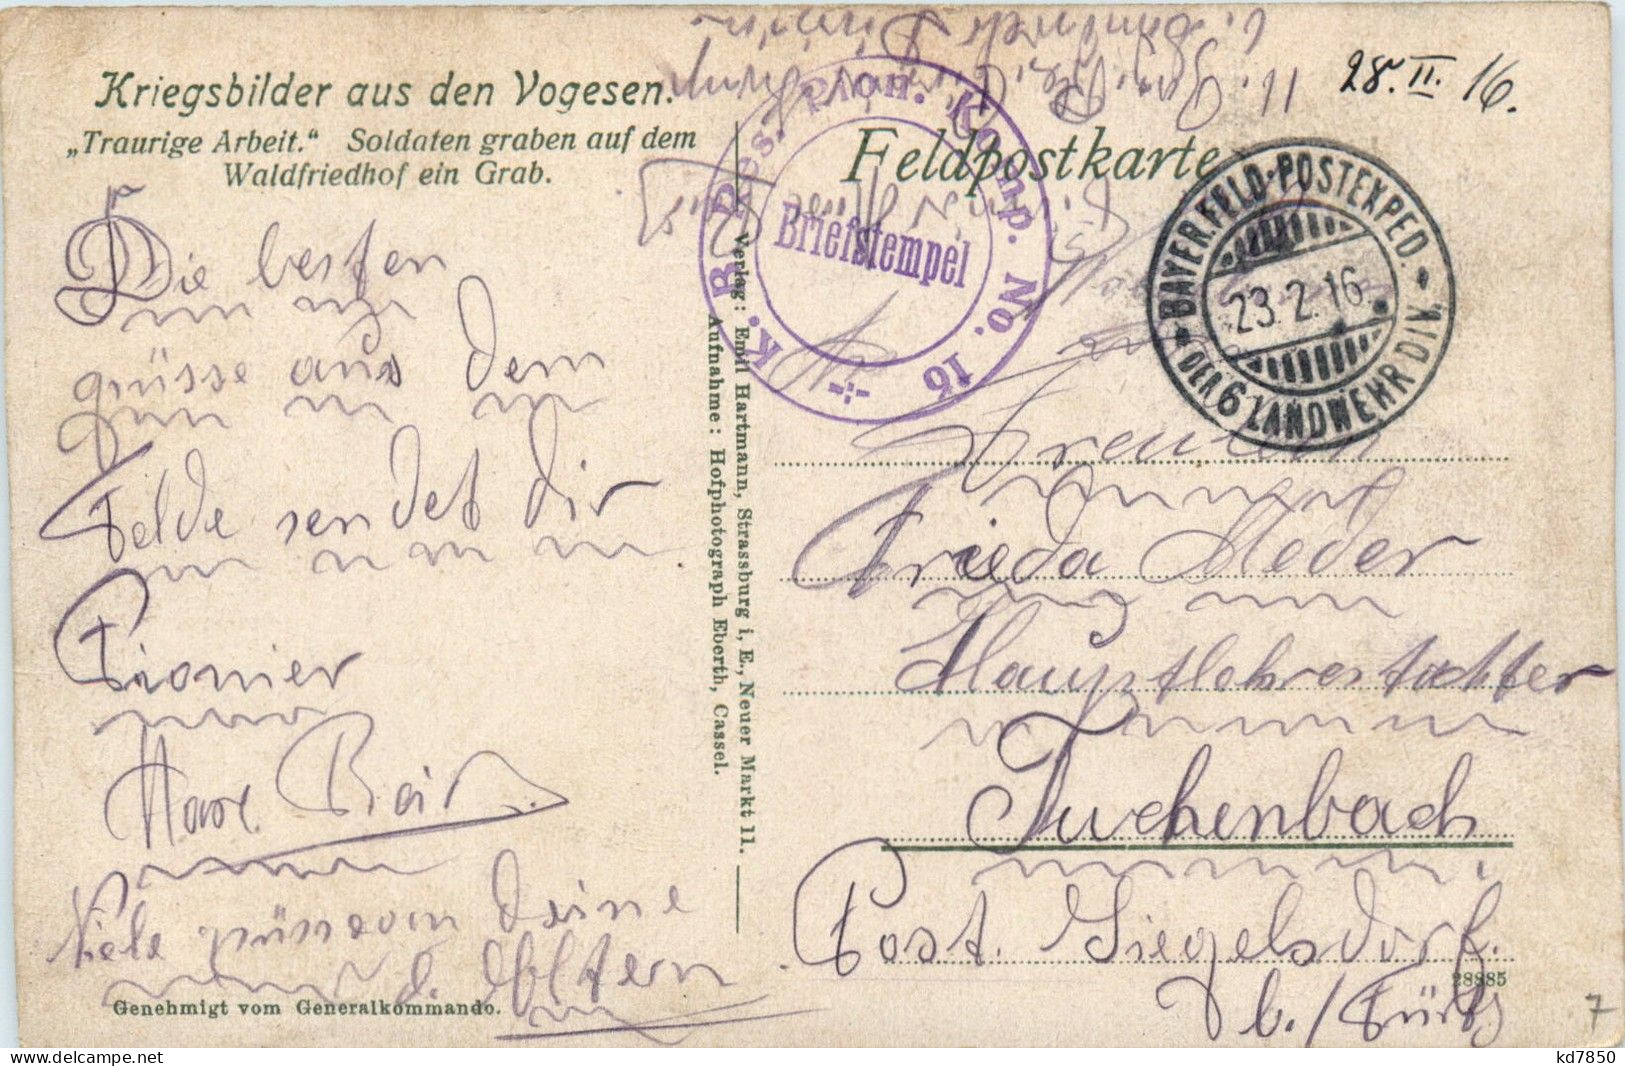 28. II. 16.
Kriegsbilder aus den Vogesen.
„Traurige Arbeit.“ Soldaten graben auf dem
Waldfriedhof ein Grab.
Feldpostkarte
K. B. Res. Pion. Komp. No. 16
Briefstempel
BAYER. FELD-POSTEXPED.
23.2.16.
DER 6 LANDWEHR DIV.
Die besten
grüsse aus dem
Felde sendet dir
Pionier
Max
Viele grüsse von deine
d. Eltern
Verlag: Emil Hartmann, Strassburg i. E., Neuer Markt 11.
Aufnahme: Hofphotograph Eberth, Cassel.
Freulein
Frieda Meder
Hauptlehrestochter
Tuchenbach
Post. Siegelsdorf.
b./Fürth
28885
Genehmigt vom Generalkommando.
7
kd7850